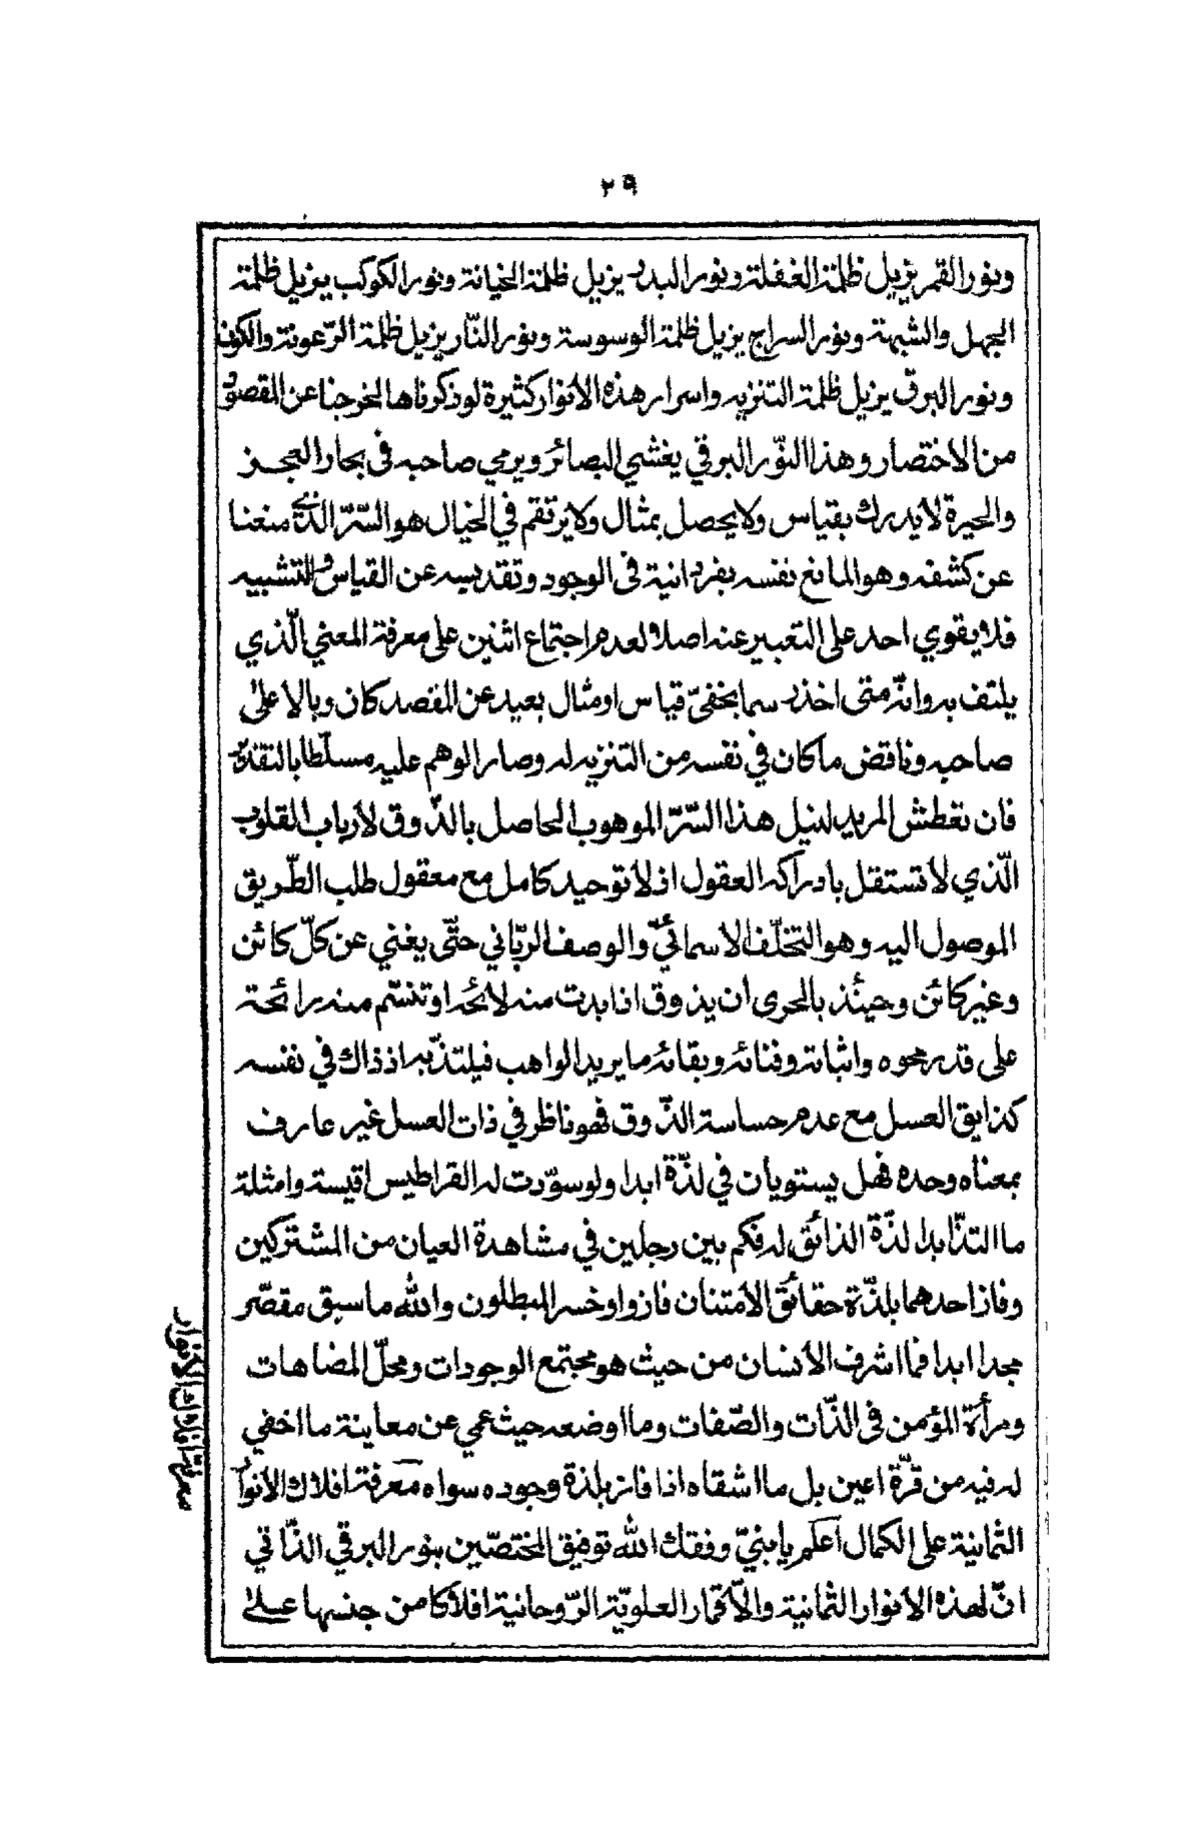 ٢٩
ونور القمر يزيل ظلمة الغفلة ونور البدر يزيل ظلمة الخيانة ونور الكوكب يزيل ظلمة
الجهل والشبهة ونور السراج يزيل ظلمة الوسوسة ونور النّار يزيل ظلمة الرّعونة والكون
ونور البرق يزيل ظلمة التنزيه واسرار هذه الأنوار كثيرة لو ذكرناها لخرجنا عن المقصود
من الاختصار وهذا النّور البرقي يغشي البصائر ويرمي صاحبه فى بحار العجز
والحيرة لا يدرك بقياس ولا يحصل بمثال ولا يرتقم في الخيال هو السّرّ الذي منعنا
عن كشفه وهو المانع نفسه بفردانية فى الوجود وتقديسه عن القياس والتشبيه
فلا يقوي احد على التعبير عنه اصلا لعدم اجتماع اثنين على معرفة المعني الّذي
يلتف به وانّه متى اخذ رسما بخفيّ قياس او مثال بعيد عن المقصد كان وبالا علىٰ
صاحبه وناقض ما كان في نفسه من التنزيه له وصار الوهم عليه مسلّطا بالتقدير
فان تعطش المريد لنيل هذا السّرّ الموهوب الحاصل بالذّوق لأرباب القلوب
الّذي لا تستقل بادراكه العقول اذ لا توحيد كامل مع معقول طلب الطّريق
الموصول اليه وهو التخلّف الاسمائيّ والوصف الربّاني حتّى يغني عن كلّ كائن
وغير كائن وحينئذ بالحرى ان يذوق اذا بدت منه لائحه او تنسّم منه رائحة
على قدر محوه واثباته وفنائه وبقائه ما يريد الواهب فيلتذّ به اذ ذاك في نفسه
كذايق العسل مع عدم حساسة الذّوق فهو ناظر في ذات العسل غير عارف
بمعناه وحده فهل يستويان في لذّة ابدا ولو سوّرت له القراطيس اقيسة وامثلة
ما التذّ ابدا لذّة الذائق له فكم بين رجلين في مشاهدة العيان من المشتركين
وفاز احدهما بلذّة حقائق الأمتنان فازوا وخسر المبطلون والله ما سبق مقصّر
مجدا ابدا فما اشرف الأنسان من حيث هو مجتمع الوجودات ومحلّ المضاهات
ومرأة المؤمن فى الذّات والصّفات وما اوضعه حيث عمي عن معاينة ما اخفي
له فيه من قرّة اعين بل ما اشقاه اذا فاز بلذة وجوده سواه معرفة افلاك الأنوار
الثمانية على الكمال اعلم يا بنيّ وفقك الله توفيق المختصّين بنور البرقي الذّاتي
انّ لهذه الأنوار الثمانية والأقمار العلويّة الرّوحانية افلاكا من جنسها علىٰ
معرفة افلاك الأنوار